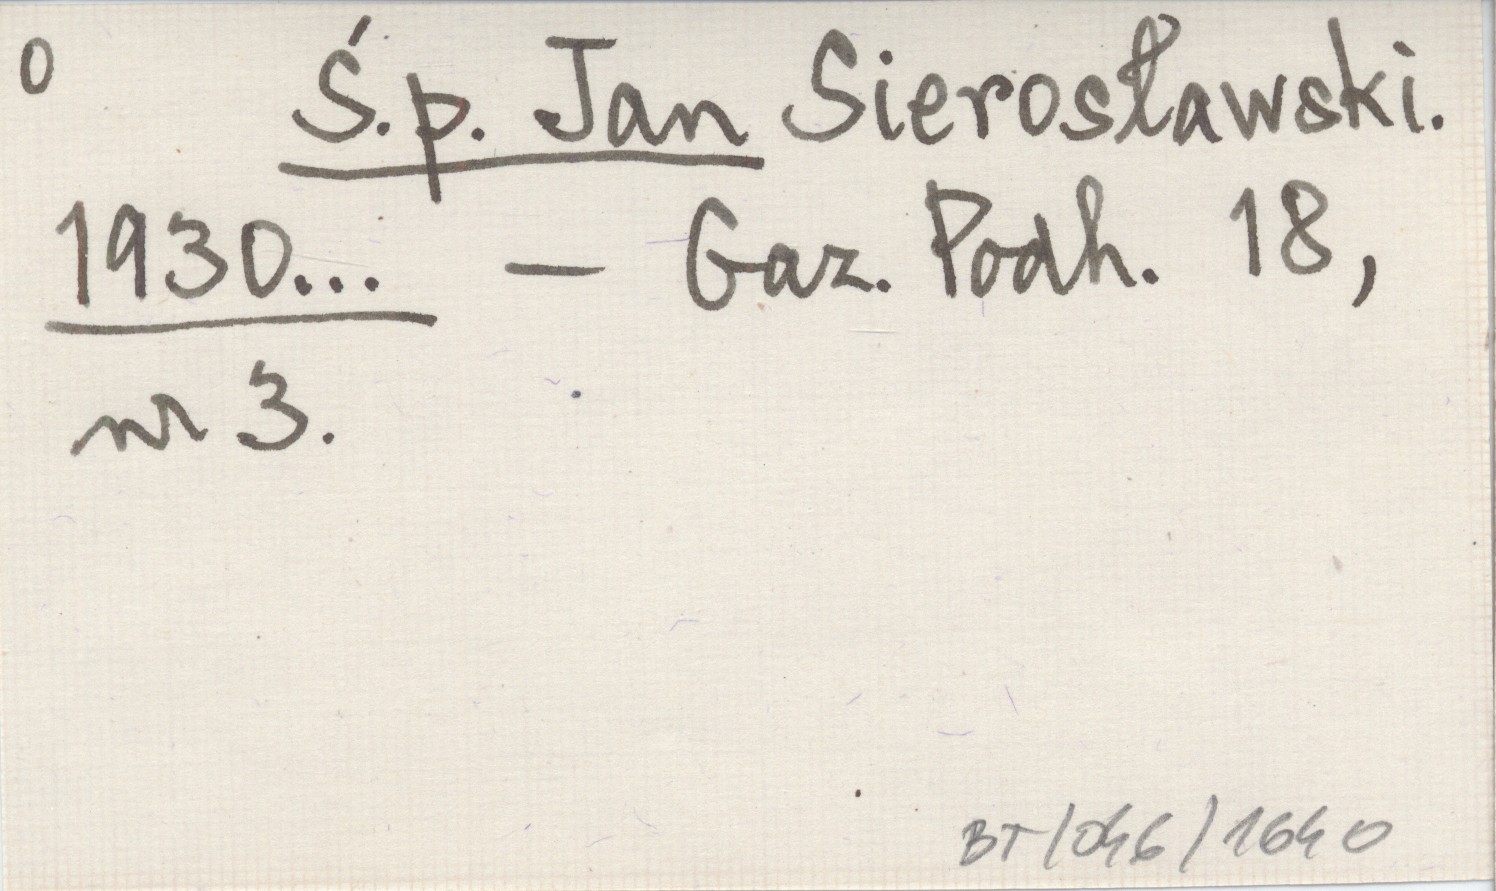 0
Ś.p. Jan Sierosławski.
1930... — Gaz. Podh. 18,
nr 3.
BT/046/1640